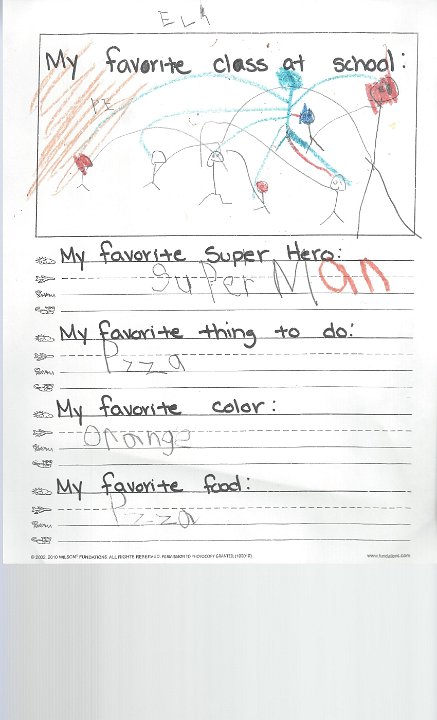 ELA
My favorite class at school:
PE
My favorite Super Hero:
SuperMan
My favorite thing to do:
Pzza
My favorite color:
Orange
My favorite food:
Pzza
© 2002, 2010 WILSON FUNDATIONS. ALL RIGHTS RESERVED. PERMISSION TO PHOTOCOPY GRANTED.
www.fundations.com